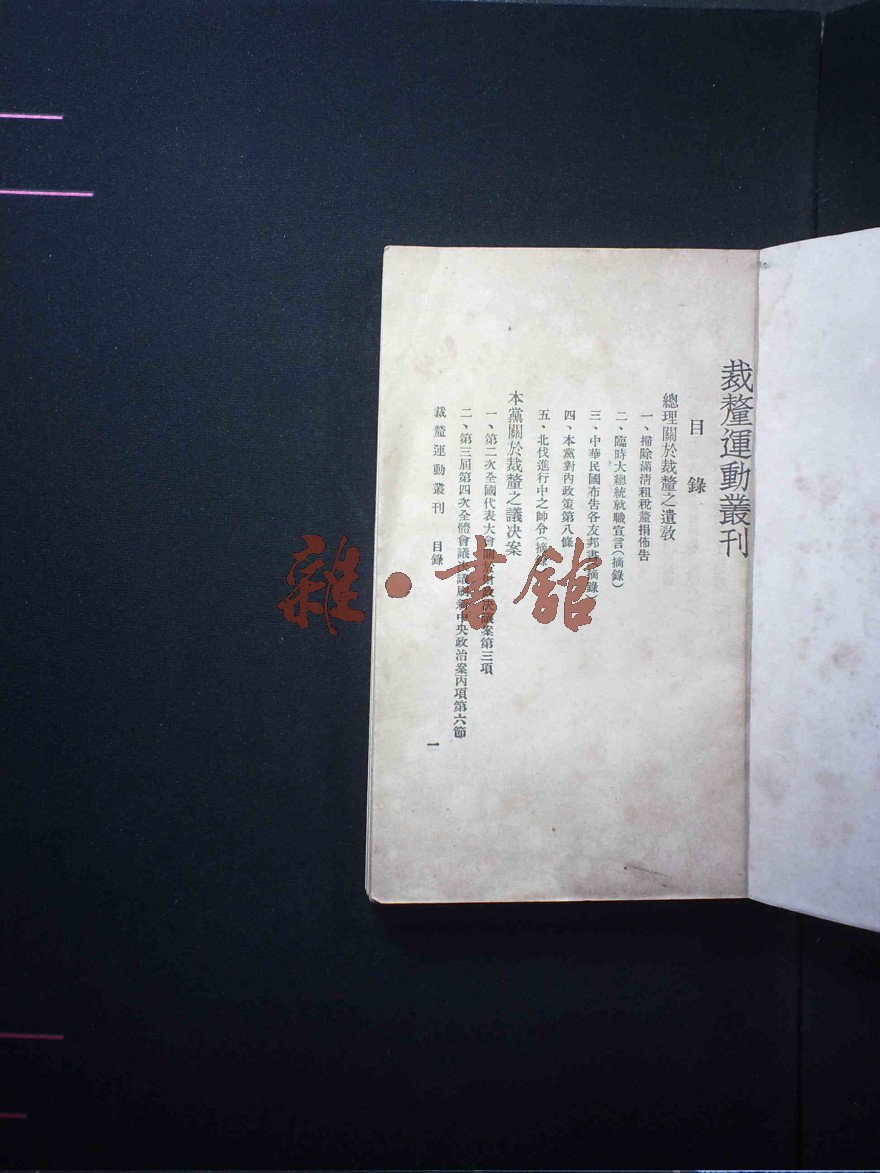 裁釐運動叢刊
目錄
總理關於裁釐之遺教
一、掃除滿淸租稅釐捐佈告
二、臨時大總統就職宣言(摘錄)
三、中華民國布告各友邦書(摘錄)
四、本黨對內政策第八條
五、北伐進行中之帥令(摘錄)
本黨關於裁釐之議決案
一、第二次全國代表大會關於財政決議案第三項
二、第三屆第四次全體會議決議刷新中央政治案丙項第六節
裁釐運動叢刊 目錄 一
雜·書館